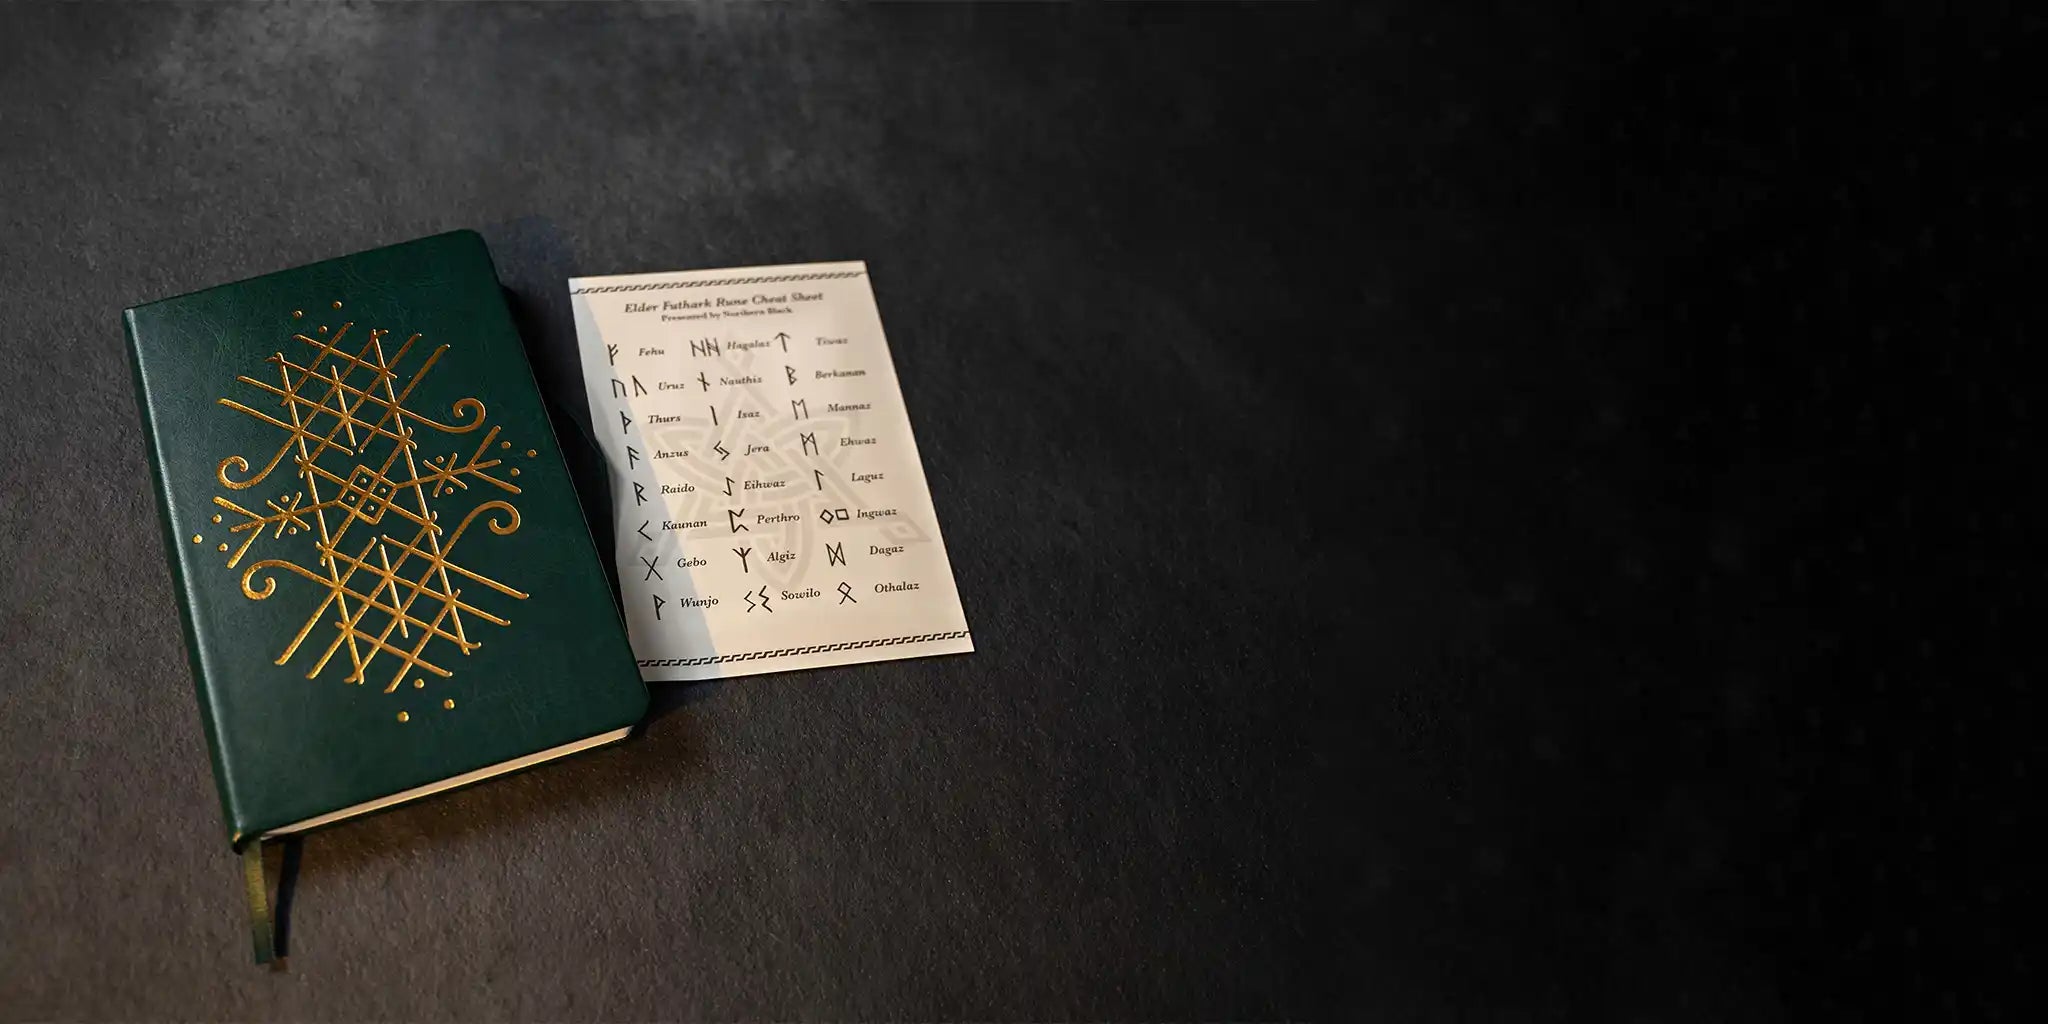 Elder Futhark Rune Cheat Sheet
Presented by Northern Black
ᚠ Fehu ᚺᚻ Hagalaz ᛏ Tiwaz
ᚢᚢ Uruz ᚾ Nauthiz ᛒ Berkanan
ᚦ Thurs ᛁ Isaz ᛖ Mannaz
ᚨ Anzus ᛃ Jera ᛗ Ehwaz
ᚱ Raido ᛇ Eihwaz ᛚ Laguz
ᚲ Kaunan ᛈ Perthro ◇□ Ingwaz
ᚷ Gebo ᛉ Algiz ᛞ Dagaz
ᚹ Wunjo ᛋᛊ Sowilo ᛟ Othalaz